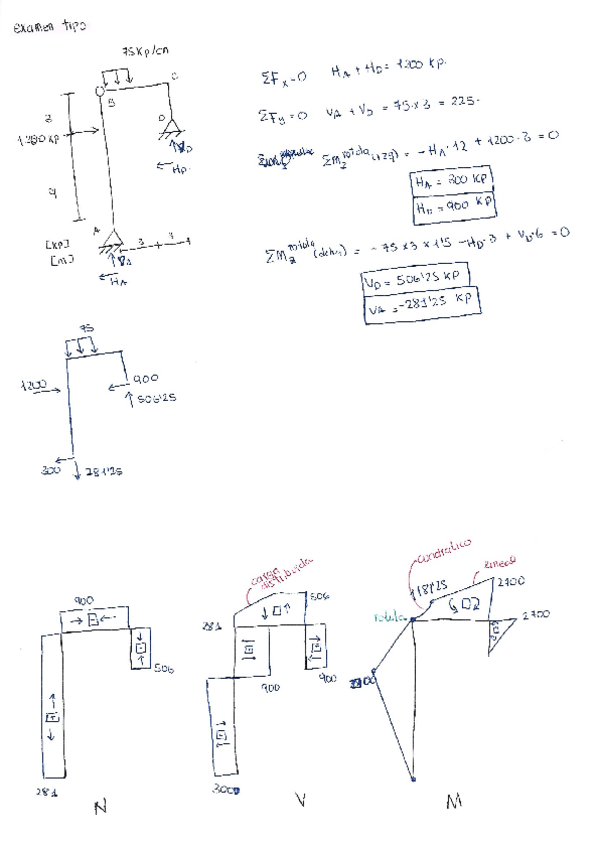 examen tipo
75 Kp/cm
B
C
3
1200 Kp
D
V_D
H_D
9
A
3 3
[Kp]
[m]
V_A
H_A
ΣF_x=0 H_A + H_D = 1200 Kp.
ΣF_y=0 V_A + V_D = 75 × 3 = 225.
ΣM_z^rótula (izq) = - H_A · 12 + 1200 · 3 = 0
H_A = 300 KP
H_D = 900 KP
ΣM_z^rótula (dcha) = - 75 × 3 × 1'5 - H_D · 3 + V_D · 6 = 0
V_D = 506'25 KP
V_A = -281'25 KP
75
1200
900
506'25
300
281'25
900
506
281
N
carga distribuida
506
281
900
900
300
V
cuadrático
lineal
1181'25
2700
rótula
2700
M